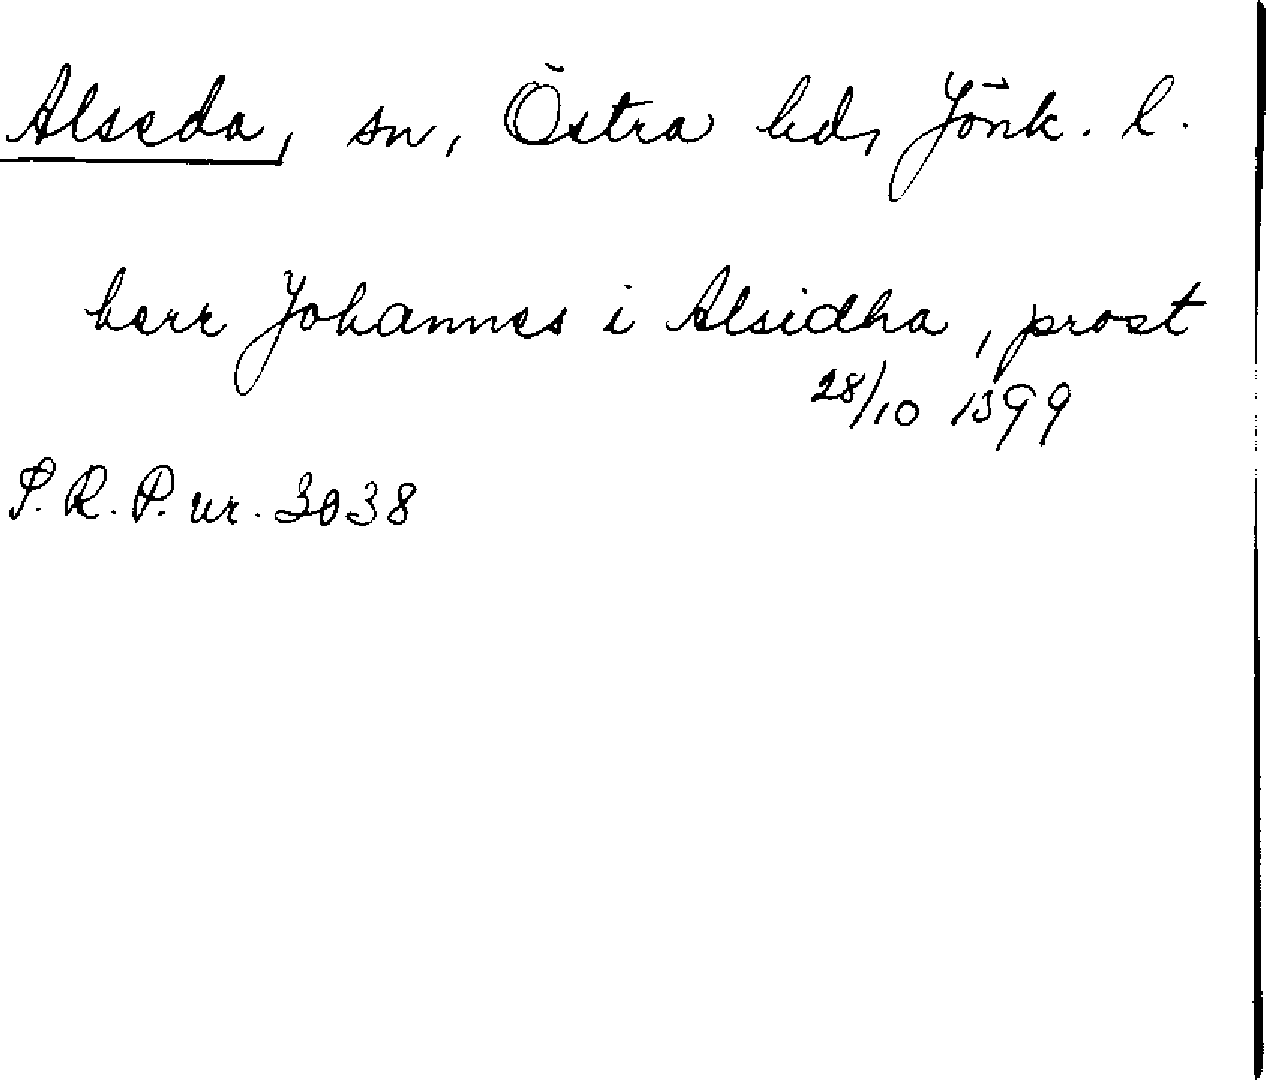 Alseda, sn, Östra hd, Jönk. l.
herr Johannes i Alsidha, prost
28/10 1399
S.R.P. nr. 3038